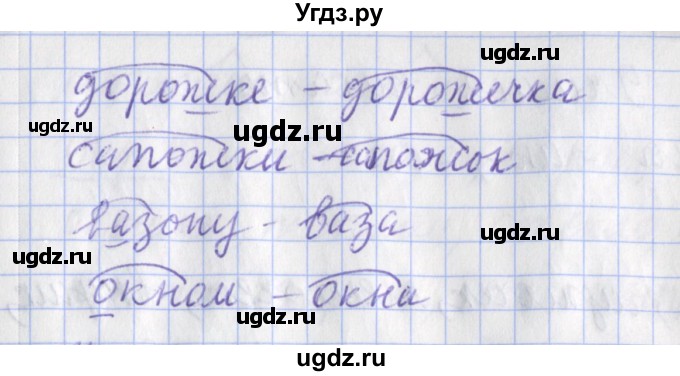 Угдз.ру
ugdz.ru
дорожке – дорожечка
ugdz.ru ugdz.ru ugdz.ru
сапожки – сапожок
ugdz.ru
вазону – ваза
ugdz.ru ugdz.ru
окном – окна
ugdz.ru
ugdz.ru